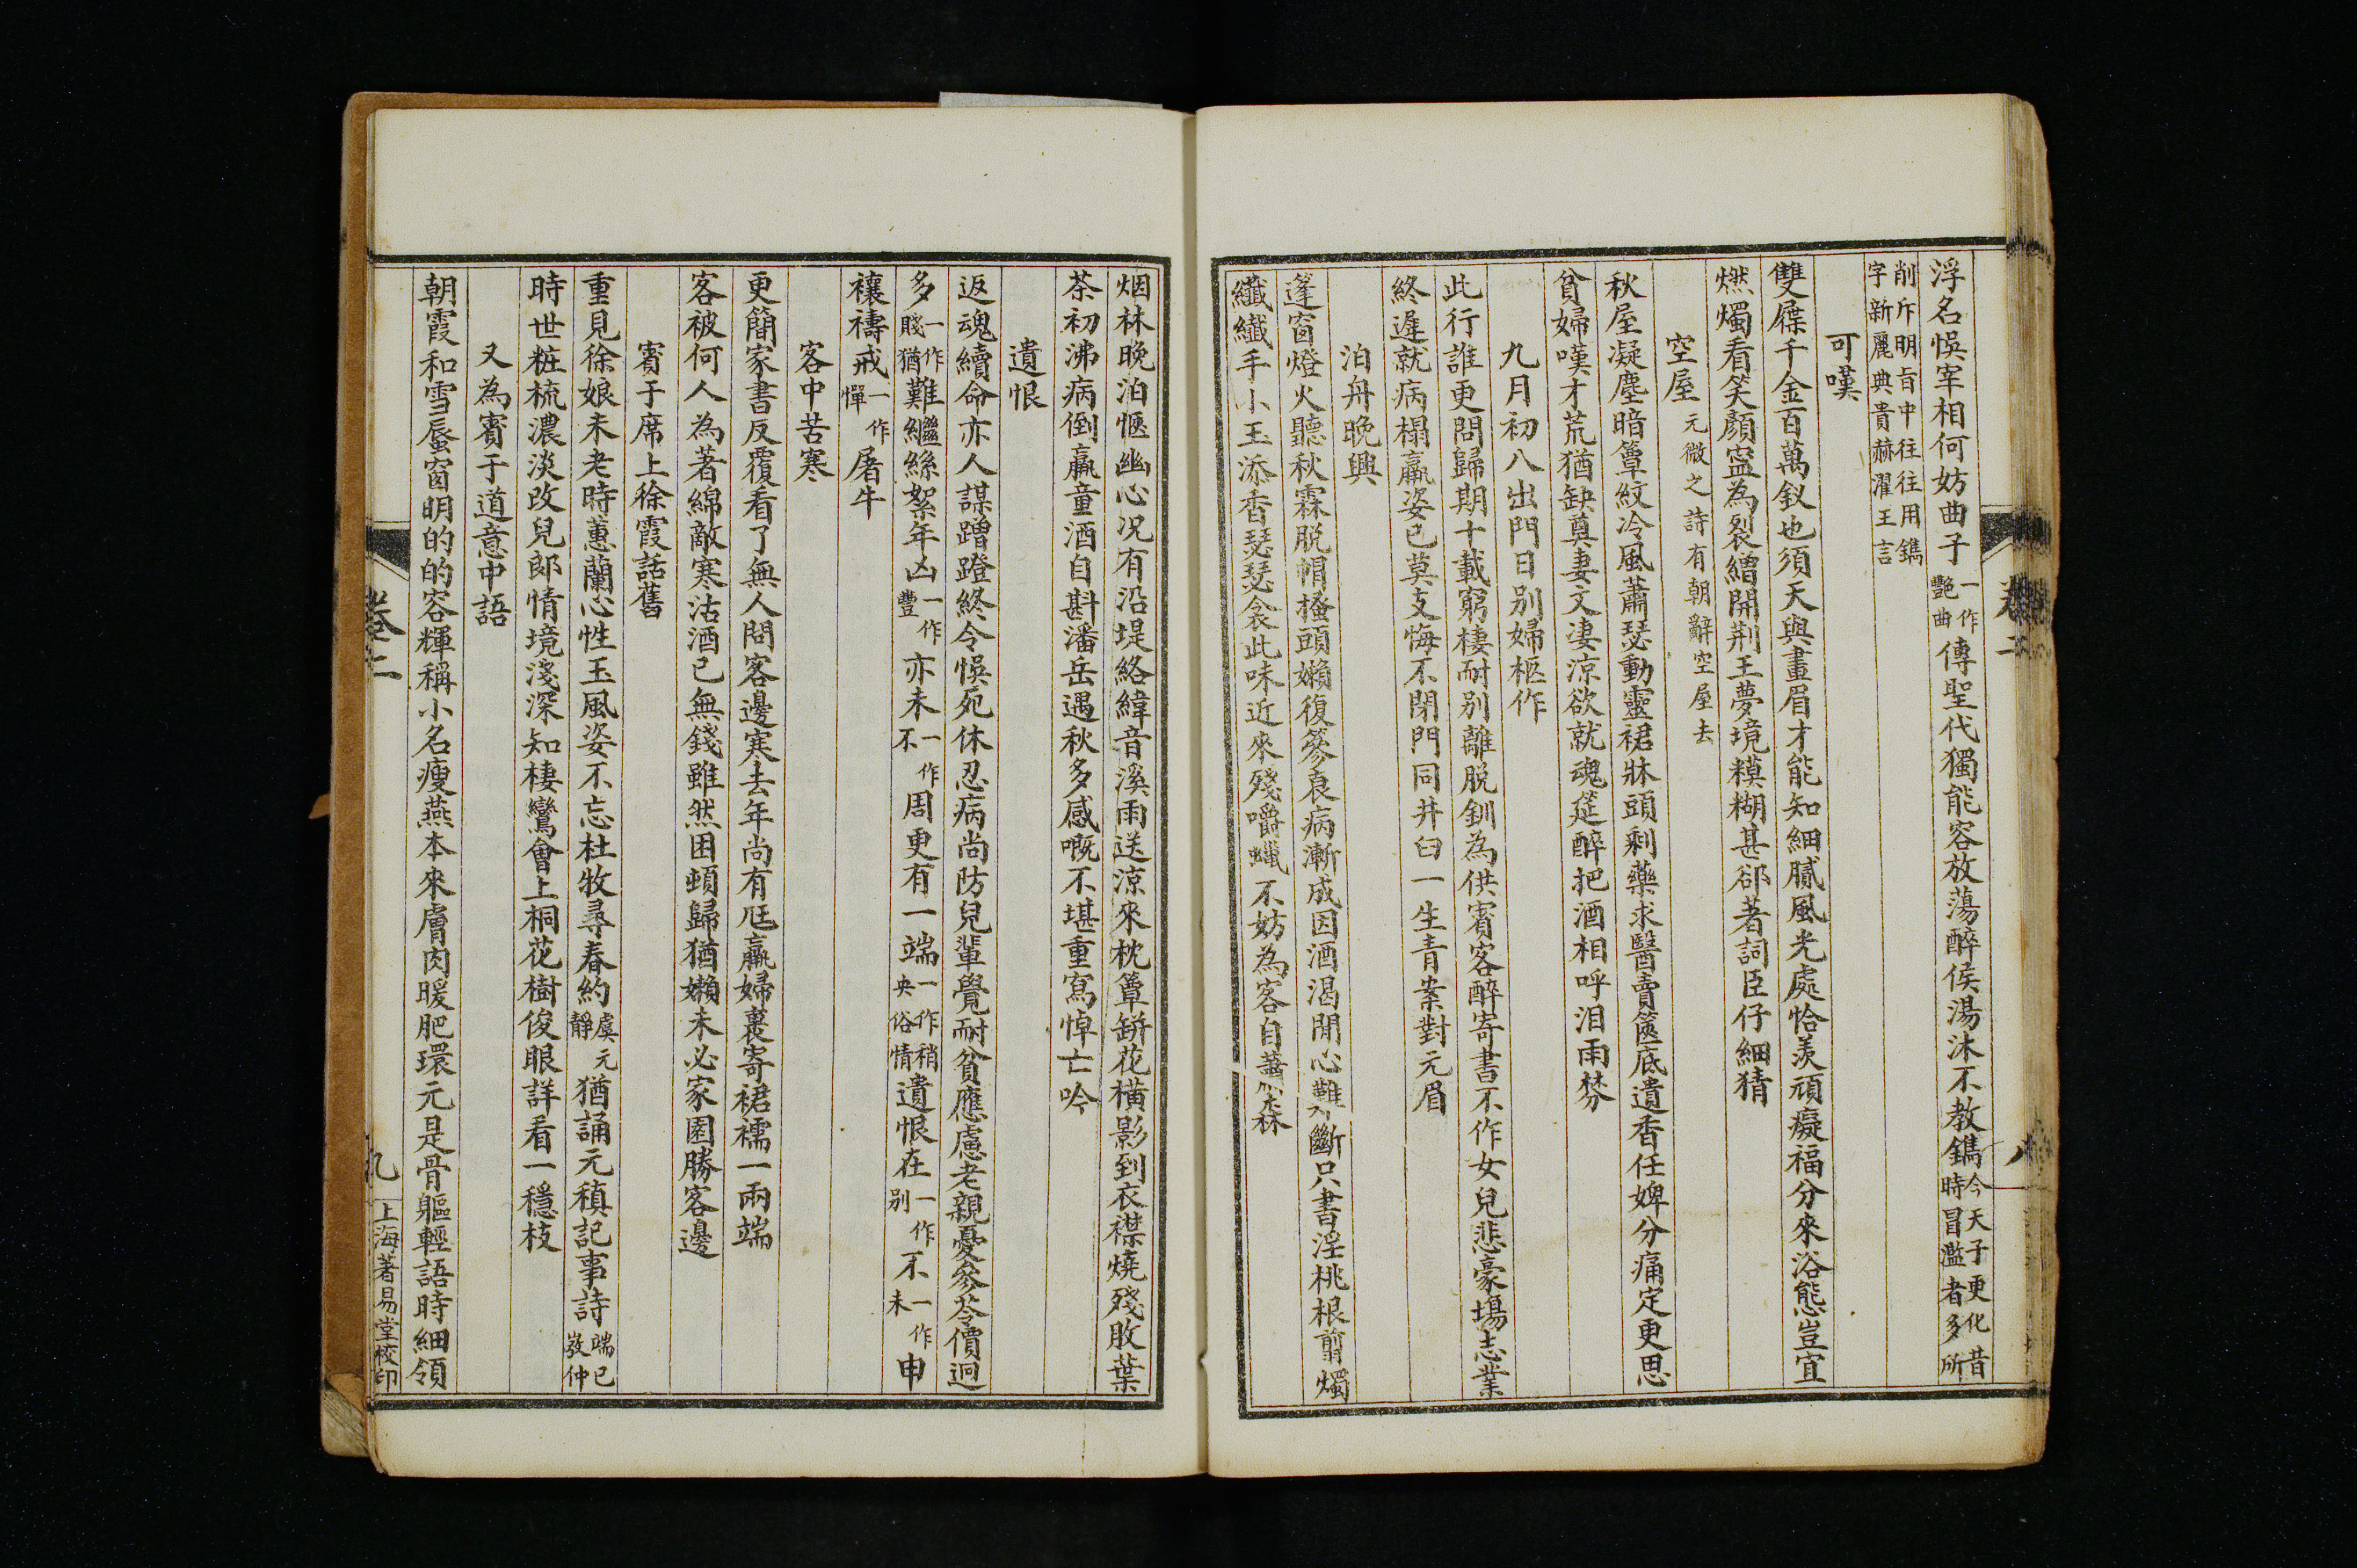 浮名悞宰相何妨曲子一作艷曲傳聖代獨能容放蕩醉侯湯沐不教鐫今天子更化昔時冒濫者多所
削斥明旨中往往用鐫字新麗典貴赫濯王言
可嘆
雙屧千金百萬釵也須天與畫眉才能知細膩風光處恰羨頑癡福分來浴態豈宜
燃燭看笑顏寍為裂繒開荆王夢境糢糊甚郤著詞臣仔細猜
空屋元微之詩有朝辭空屋去
秋屋凝塵暗簟紋冷風蕭瑟動靈裙牀頭剩藥求醫賣篋底遺香任婢分痛定更思
貧婦嘆才荒猶缺奠妻文凄涼欲就魂筵醉把酒相呼泪雨棼
九月初八出門日别婦柩作
此行誰更問歸期十載窮棲耐别離脱釧為供賓客醉寄書不作女兒悲豪塲志業
終遲就病榻羸姿已莫支悔不閉門同井臼一生青案對元眉
泊舟晚興
篷窗燈火聽秋霖脱帽搔頭嬾復篸衰病漸成因酒渴閒心難斷只書淫桃根翦燭
纖纖手小玉添香瑟瑟衾此味近來殘嚼蠟不妨為客自蕭森
烟林晚泊愜幽心况有沿堤絡緯音溪雨送涼來枕簟缾花橫影到衣襟燒殘敗葉
茶初沸病倒羸童酒自斟潘岳遇秋多感嘅不堪重寫悼亡吟
遺恨
返魂續命亦人謀蹭蹬終令悞死休忍病尚防兒輩覺耐貧應慮老親憂參苓價迥
多一作賤猶難繼絲絮年凶一作豐亦未一作不周更有一端一作稍央俗情遺恨在一作别不一作未申
禳禱戒一作憚屠牛
客中苦寒
更簡家書反覆看了無人問客邊寒去年尚有尫羸婦裹寄裙襦一兩端
客被何人為著綿敵寒沽酒已無錢雖然困頓歸猶嬾未必家園勝客邊
賓于席上徐霞話舊
重見徐娘未老時蕙蘭心性玉風姿不忘杜牧尋春約虞元靜猶誦元稹記事詩端已敎仲
時世粧梳濃淡改兒郎情境淺深知棲鸞會上桐花樹俊眼詳看一穩枝
又為賓于道意中語
朝霞和雪蜃窗明的的容輝稱小名瘦燕本來膚肉暖肥環元是骨軀輕語時細領
卷二
九
上海著易堂校印